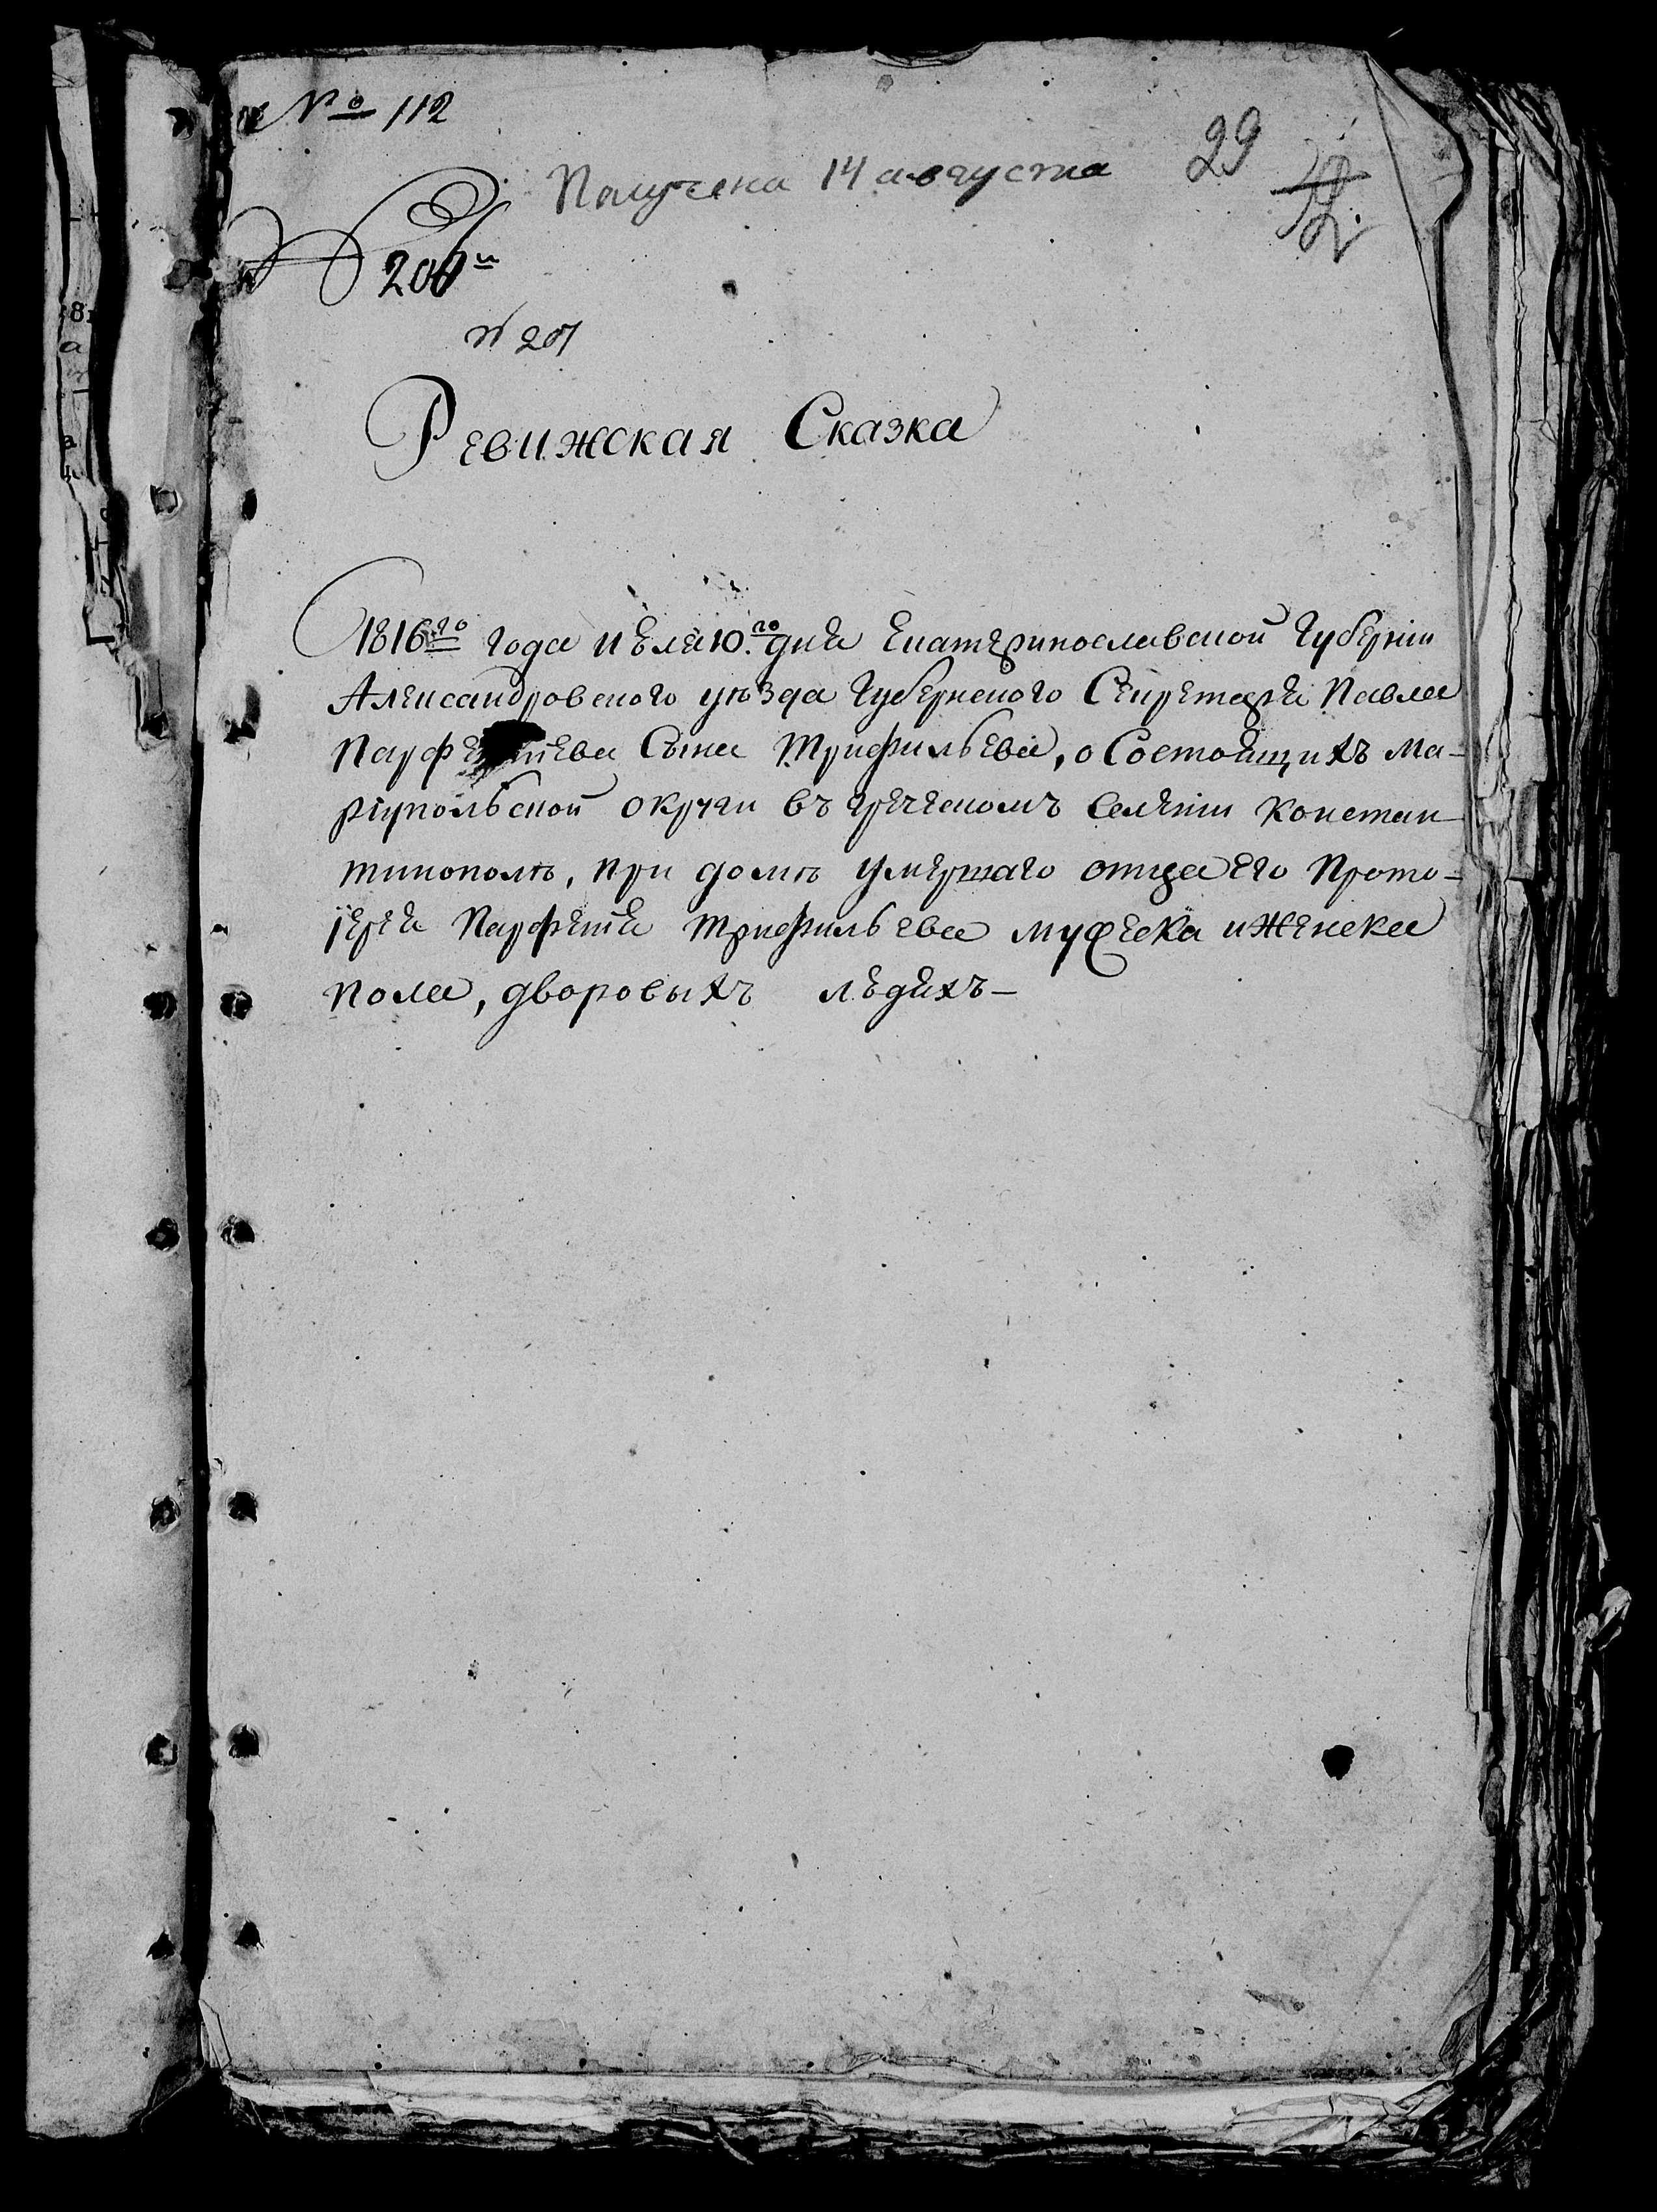 № 112
Получена 14 августа 29
206й
№ 207
Ревижская Сказка
1816го года июля 10.го дня Екатеринославской Губернии
Александровского уѣзда Губернского Секретаря Павла
Сына Трифильева, о Состоящихъ Ма-
риупольской округи въ греческомъ Селении Констан-
тинополѣ, при домѣ умершаго отца его Прото-
иерея Парфения Трифильева мужеска и Женска
пола, дворовыхъ людяхъ-